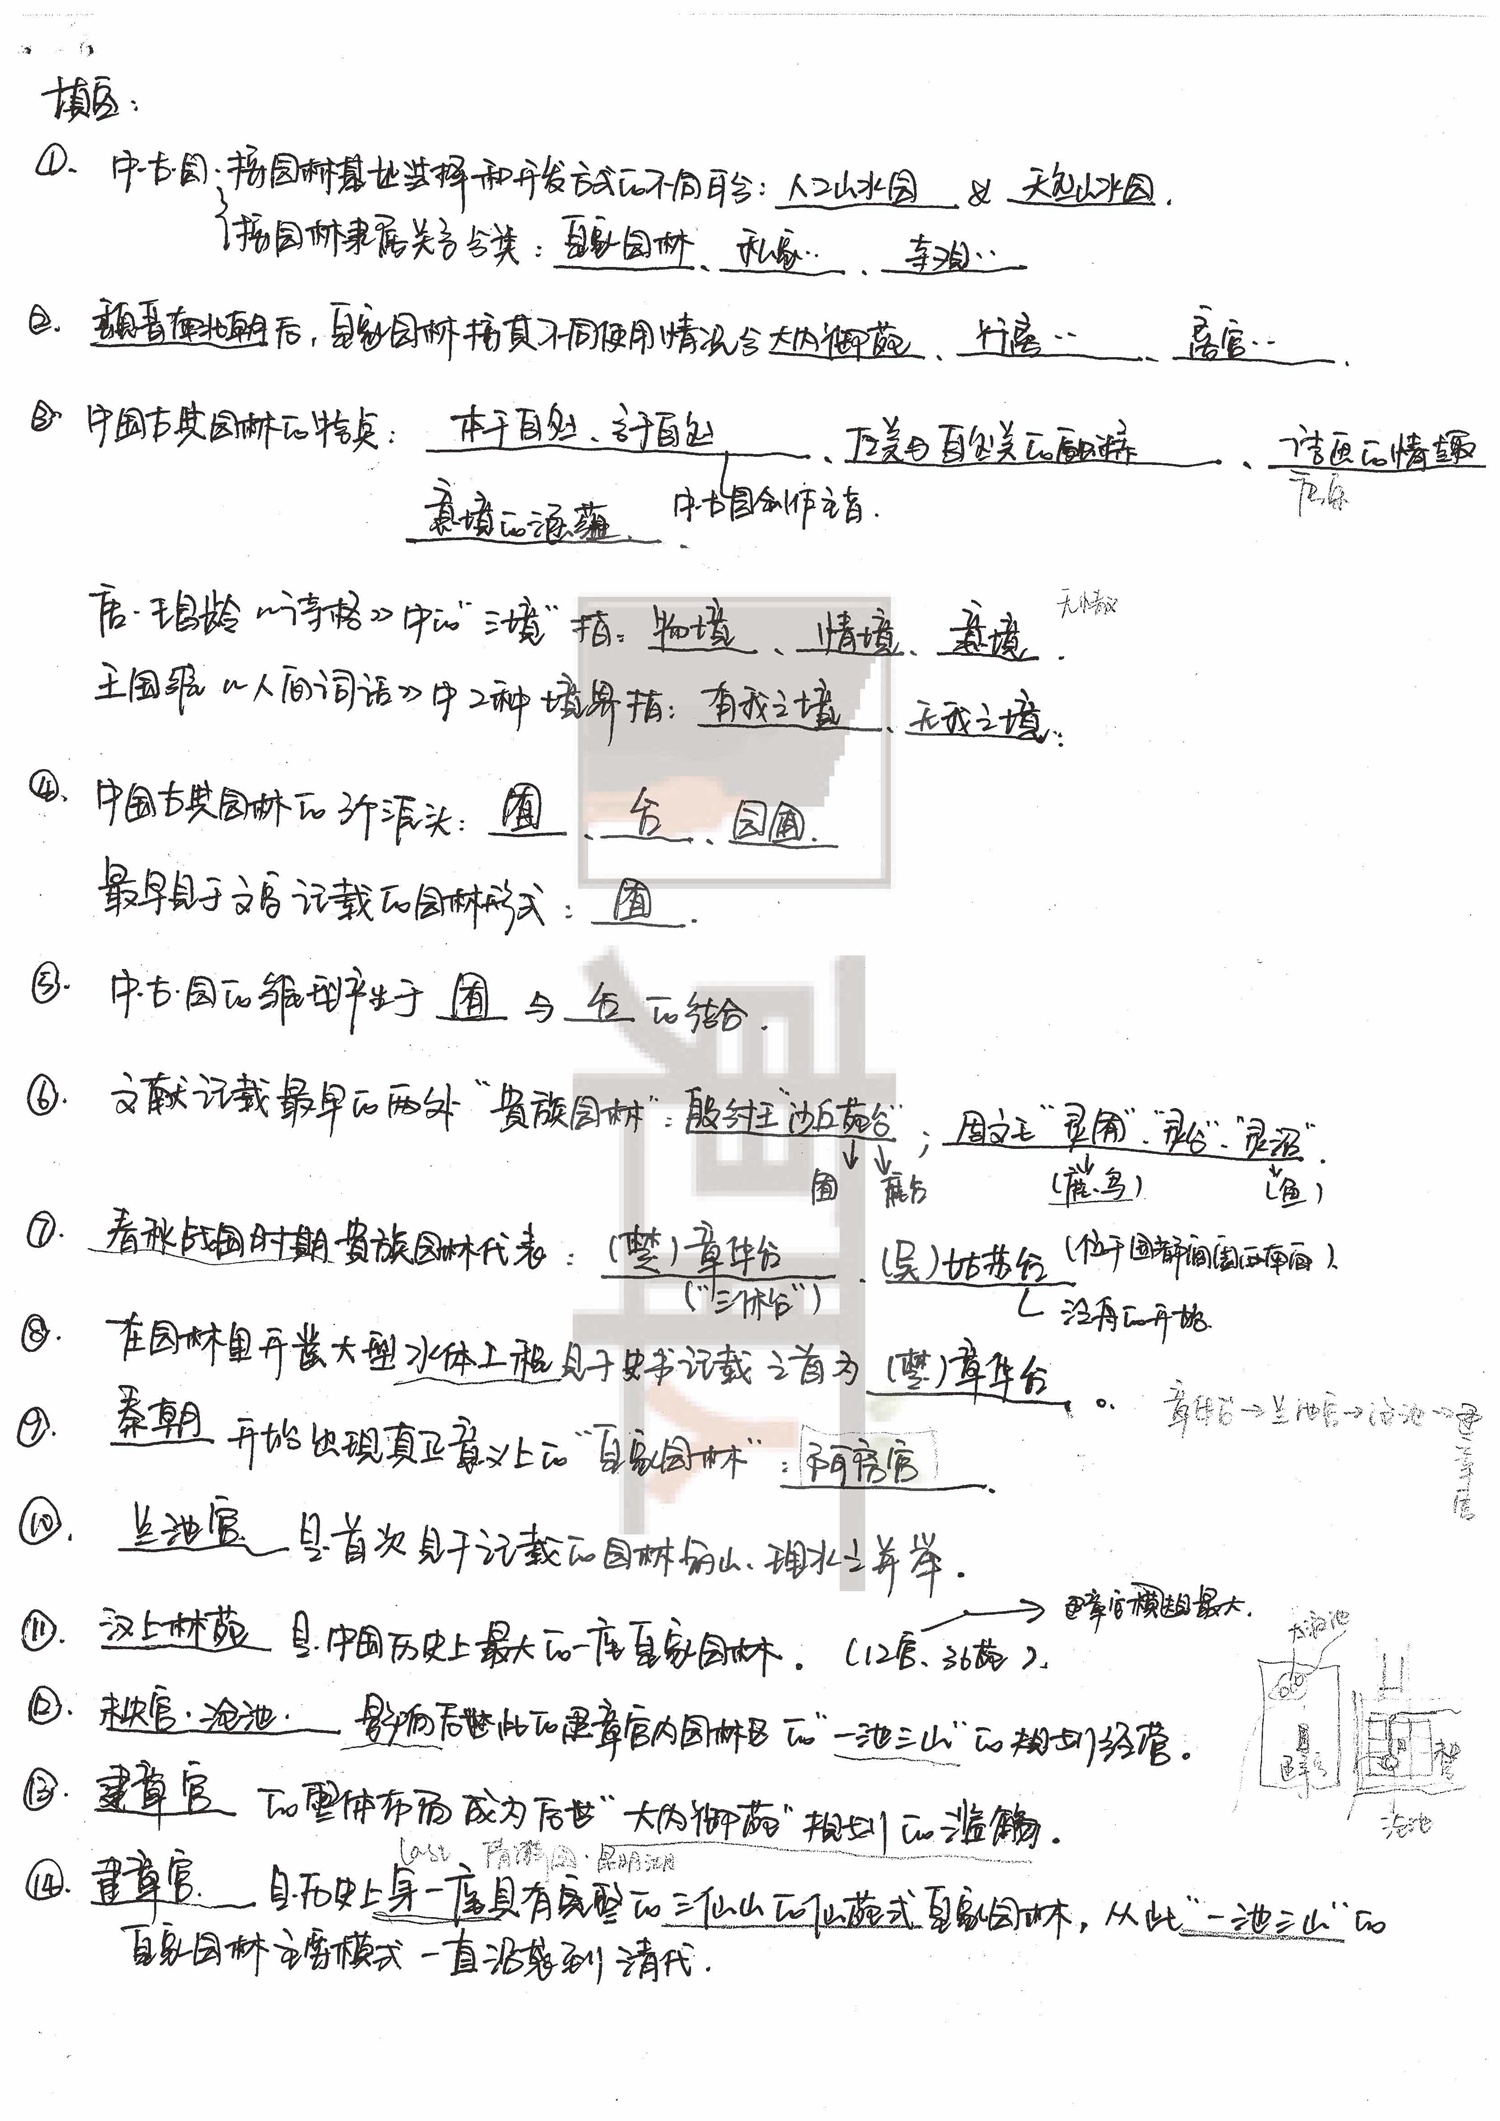 填空：
①. 中·古·园·按园林基址选择和开发方式的不同可分：人工山水园 & 天然山水园.
按园林隶属关系分类：皇家园林、私家‥、寺观‥
②. 魏晋南北朝后，皇家园林按其不同使用情况分大内御苑、行宫‥、离宫‥.
③ 中国古典园林的特点：本于自然、高于自然、建筑美与自然美的融糅、诗画的情趣
意境的涵蕴. 中古园创作主旨.
唐·王昌龄《诗格》中的“三境”指：物境、情境、意境.
王国维《人间词话》中2种境界指：有我之境、无我之境.
④. 中国古典园林的3个源头：囿、台、园圃.
最早见于文字记载的园林形式：囿.
⑤. 中·古·园的雏型产生于囿与台的结合.
⑥. 文献记载最早的两处“贵族园林”：殷纣王“沙丘苑台”；周文王“灵囿”、“灵台”、“灵沼”.
囿 鹿台 (鹿、鸟) (鱼)
⑦. 春秋战国时期贵族园林代表：(楚)章华台、(吴)姑苏台 (位于国都
(“三休台”)
⑧. 在园林里开凿大型水体工程见于史书记载之首为(楚)章华台。
章华台→兰池宫→
⑨. 秦朝开始出现真正意义上的“皇家园林”：阿房宫.
⑩. 兰池宫是首次见于记载的园林筑山、理水之并举.
建章宫模规最大.
⑪. 汉上林苑是中国历史上最大的一座皇家园林. (12宫、36苑).
太液池
⑫. 未央宫·沧池·影响后世此的建章宫内园林区的“一池三山”的规划经营。
建章宫
⑬. 建章宫的整体布局成为后世“大内御苑”规划的滥觞.
沧池
last 清漪园·昆明湖
⑭. 建章宫是历史上第一座具有完整的三仙山的仙苑式皇家园林，从此“一池三山”的
皇家园林主要模式一直沿袭到清代.